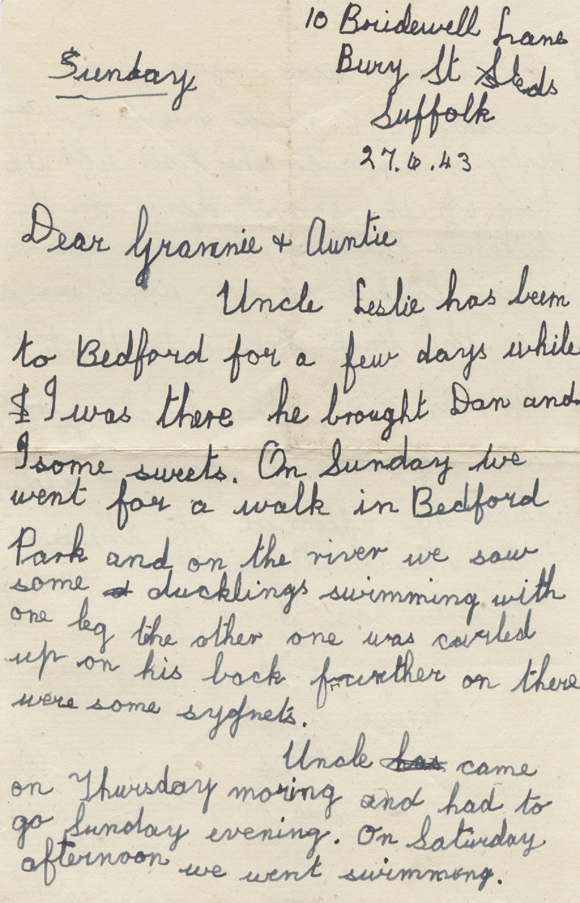 10 Bridewell Lane
Sunday
Bury St Eds
Suffolk
27.6.43
Dear Grannie & Auntie
Uncle Leslie has been
to Bedford for a few days while
I was there he brought Dan and
I some sweets. On Sunday we
went for a walk in Bedford
Park and on the river we saw
some ducklings swimming with
one leg the other one was curled
up on his back further on there
were some sygnets.
Uncle has came
on Thursday moring and had to
go Sunday evening. On Saturday
afternoon we went swimmong.